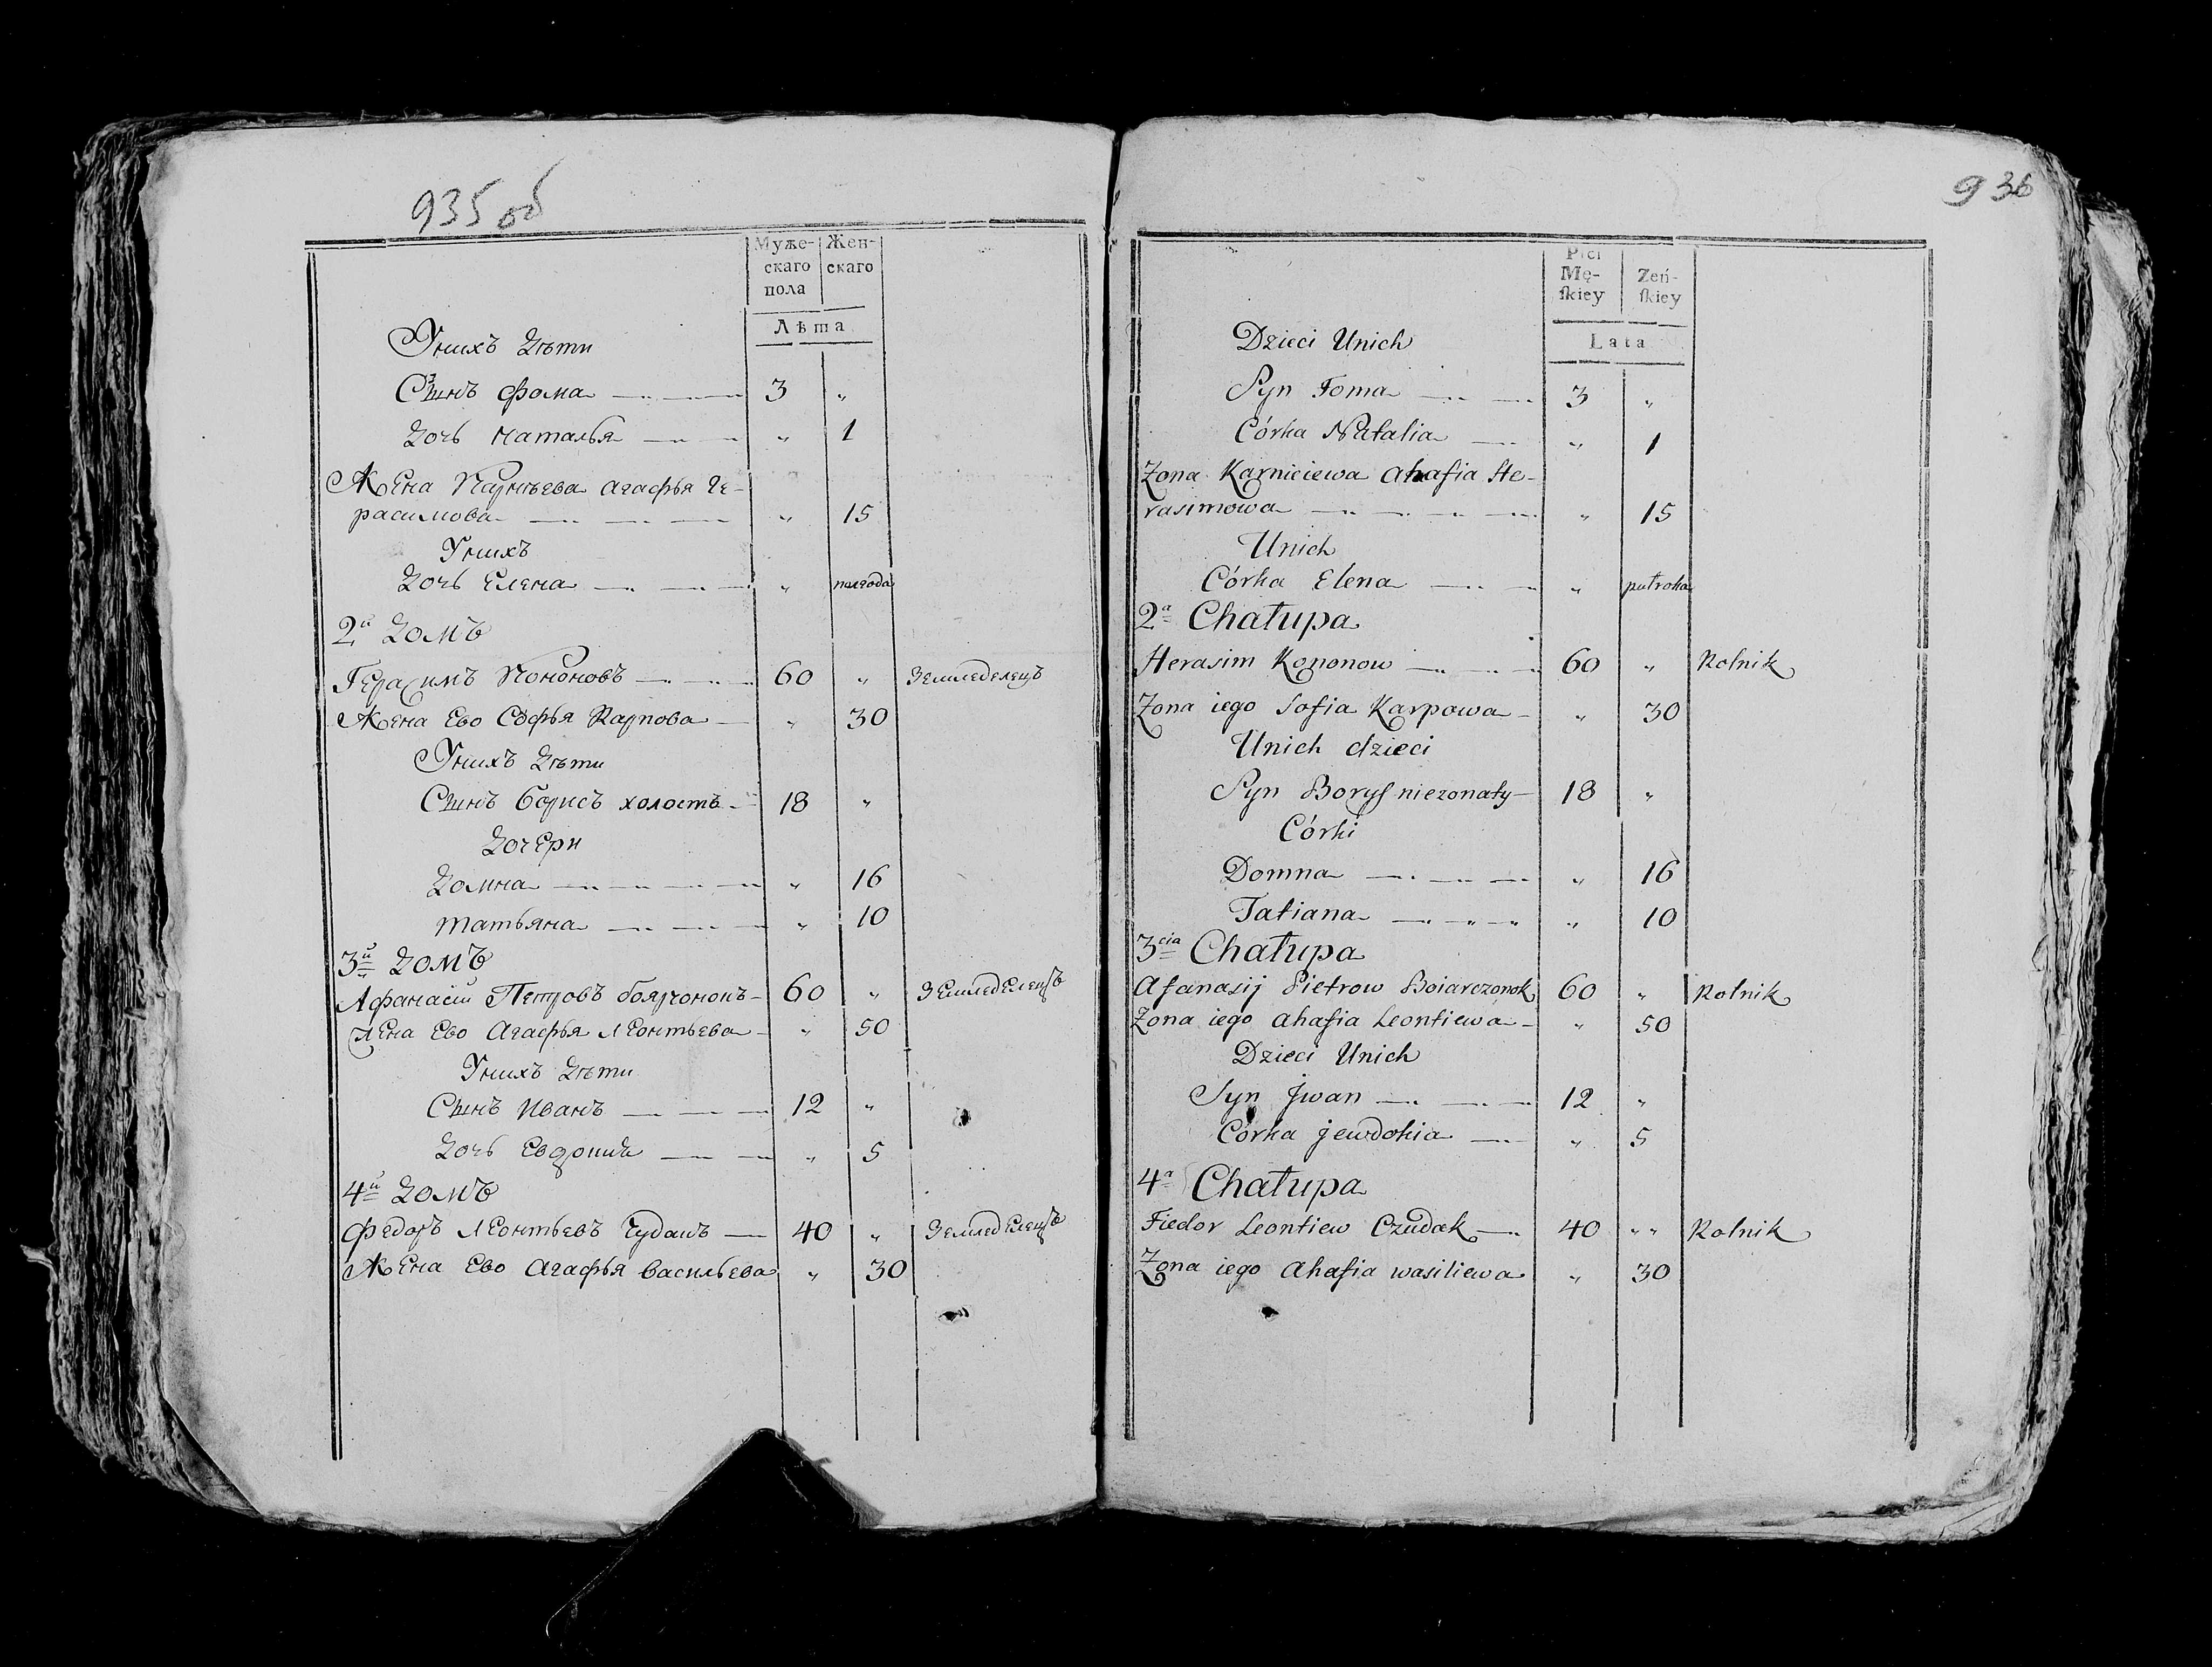 935 об
Муже- Жен-
скаго скаго
пола
Лѣта
Унихъ Дѣти
Сынъ Фома 3 „
Дочь Наталья „ 1
Жена Карнѣева Агафья Ге-
расимова „ 15
Унихъ
Дочь Елена „ полгода
2й Домъ
Герасимъ Кононовъ 60 „ Земледелецъ
Жена Ево Софья Карпова „ 30
Унихъ Дѣти
Сынъ Борисъ холостъ 18 „
Дочери
Домна „ 16
Татьяна „ 10
3й Домъ
Афанасій Петровъ боярчонокъ 60 „ Земледелецъ
Жена Ево Агафья Леонтьева „ 50
Унихъ Дѣти
Сынъ Иванъ 12 „
Дочь Евдокия „ 5
4й Домъ
Федоръ Леонтьевъ Чудакъ 40 „ Земледелецъ
Жена Ево Агафья Васильева „ 30
936
Płci
Mę- Zeń-
ſkiey ſkiey
Lata
Dzieci Unich
Syn Foma 3 „
Córka Natalia „ 1
Zona Karnieiewa Ahafia He-
rasimowa „ 15
Unich
Córka Elena „ pułroka
2a Chałupa
Herasim Kononow 60 „ Rolnik
Zona iego Sofia Karpowa „ 30
Unich dzieci
Syn Borys niezonaty 18 „
Córki
Domna „ 16
Tatiana „ 10
3cia Chałupa
Afanasij Pietrow Boiarczonok 60 „ Rolnik
Zona iego Ahafia Leontiewa „ 50
Dzieci Unich
Syn Jwan 12 „
Córka jewdokia „ 5
4a Chałupa
Fiedor Leontiew Czudak 40 „ „ Rolnik
Zona iego Ahafia wasiliewa „ 30